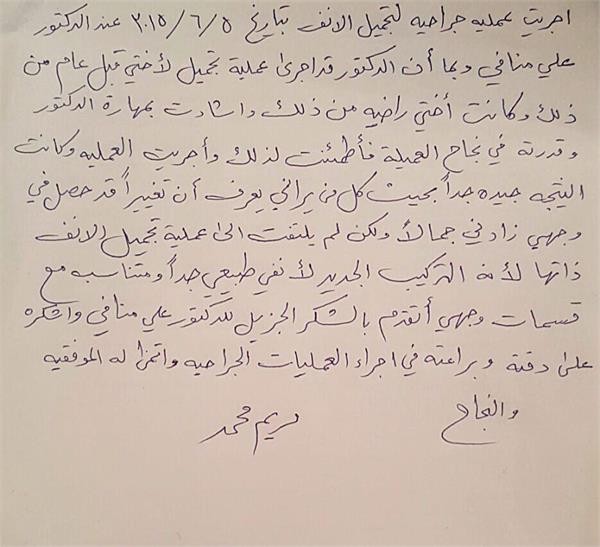 اجريت عمليه جراحيه لتجميل الانف بتاريخ ٢٠١٥/٦/٥ عند الدكتور
علي منافي وبما أن الدكتور قد اجرى عملية تجميل لأختي قبل عام من
ذلك وكانت أختي راضيه من ذلك واشادت بمهارة الدكتور
وقدرته في نجاح العميلة فأطمئنت لذلك وأجريت العمليه وكانت
النتيجه جيده جداً بحيث كل من يراني يعرف أن تغييراً قد حصل في
وجهي زادني جمالاً ولكن لم يلتفت الى عملية تجميل الانف
ذاتها لأنه التركيب الجديد لأنفي طبيعي جداً ومتناسب مع
قسمات وجهي أتقدم بالشكر الجزيل للدكتور علي منافي واشكره
على دقته وبراعته في اجراء العمليات الجراحيه واتمنا له الموفقيه
والنجاح
مريم محمد